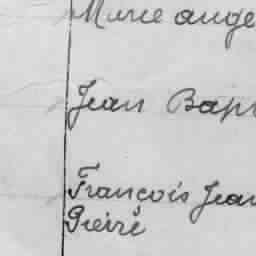 Marie ange
Jean Bap
François Jean
Pierre